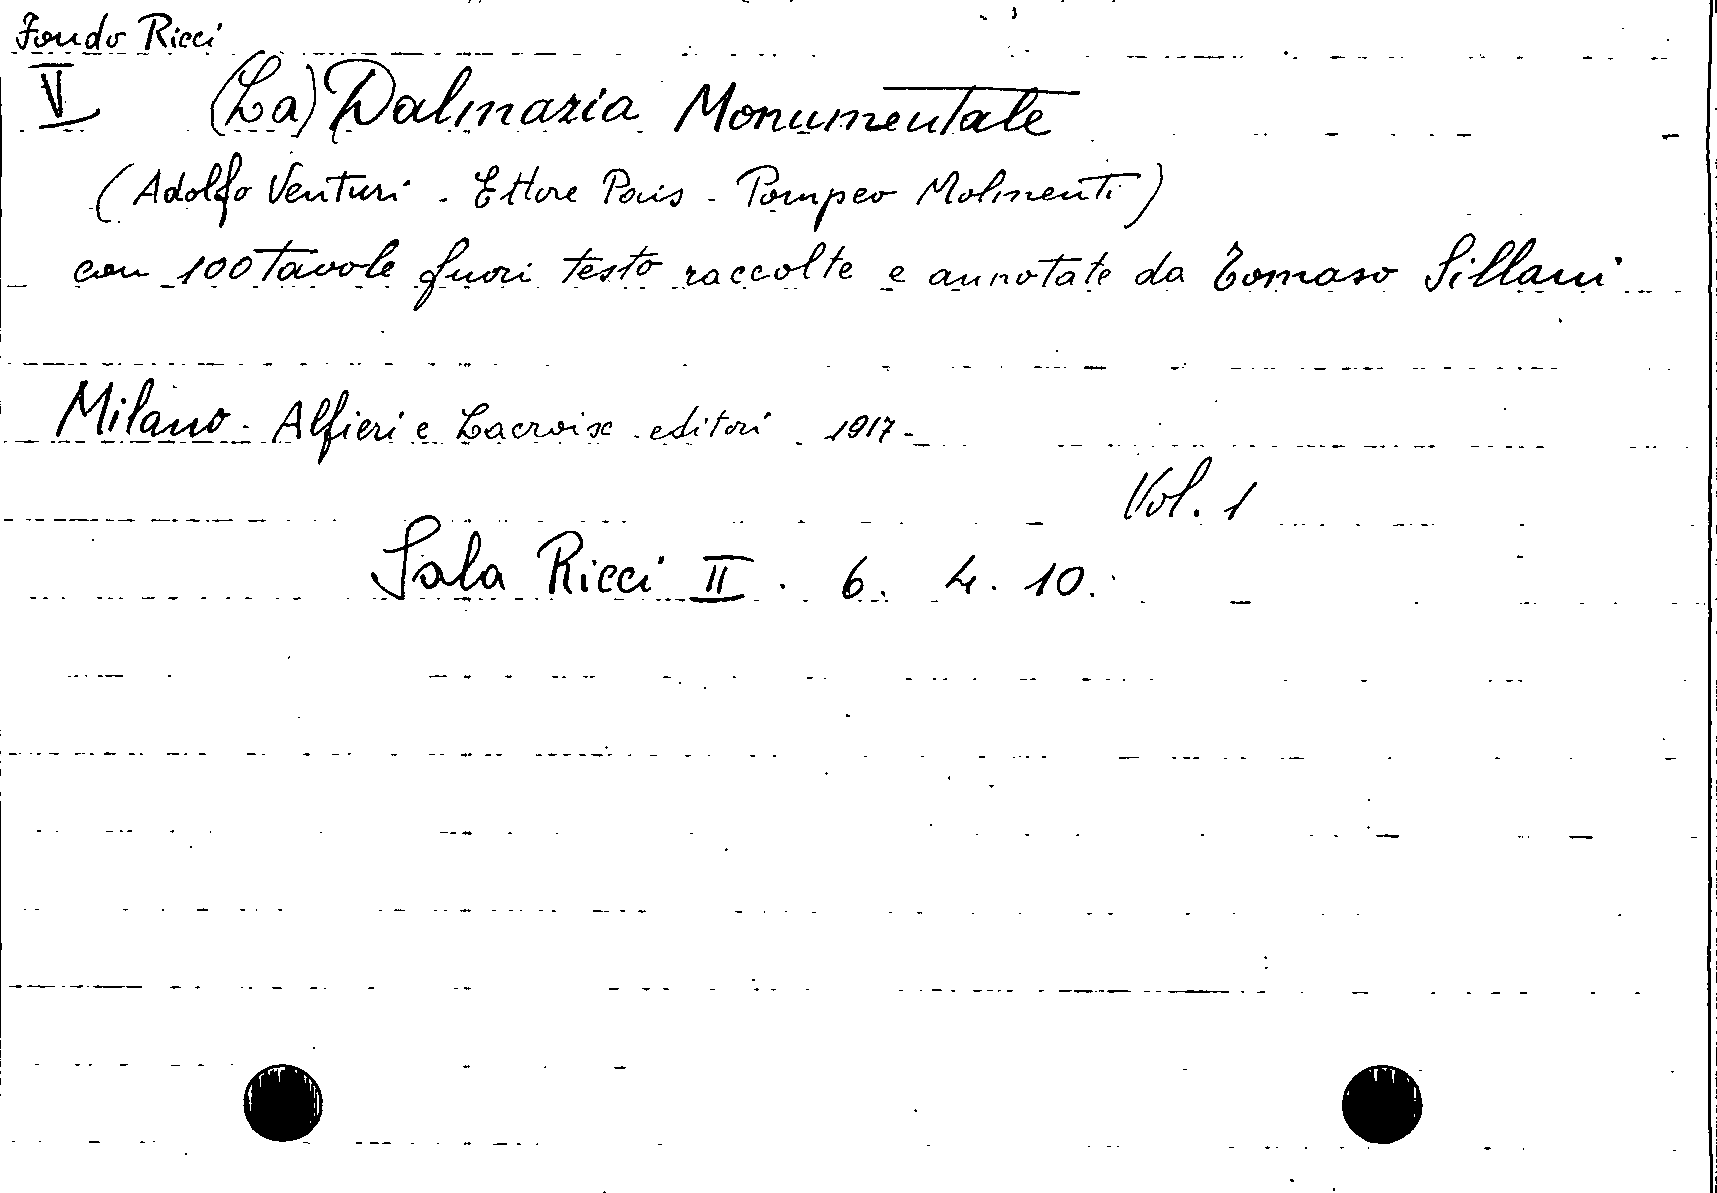 Fondo Ricci
V (La) Dalmazia Monumentale
(Adolfo Venturi - Ettore Pais - Pompeo Molmenti)
con 100 tavole fuori testo raccolte e annotate da Tomaso Sillani
Milano - Alfieri e Lacroix editori 1917 -
Vol. 1
Sala Ricci II . 6. 4. 10.